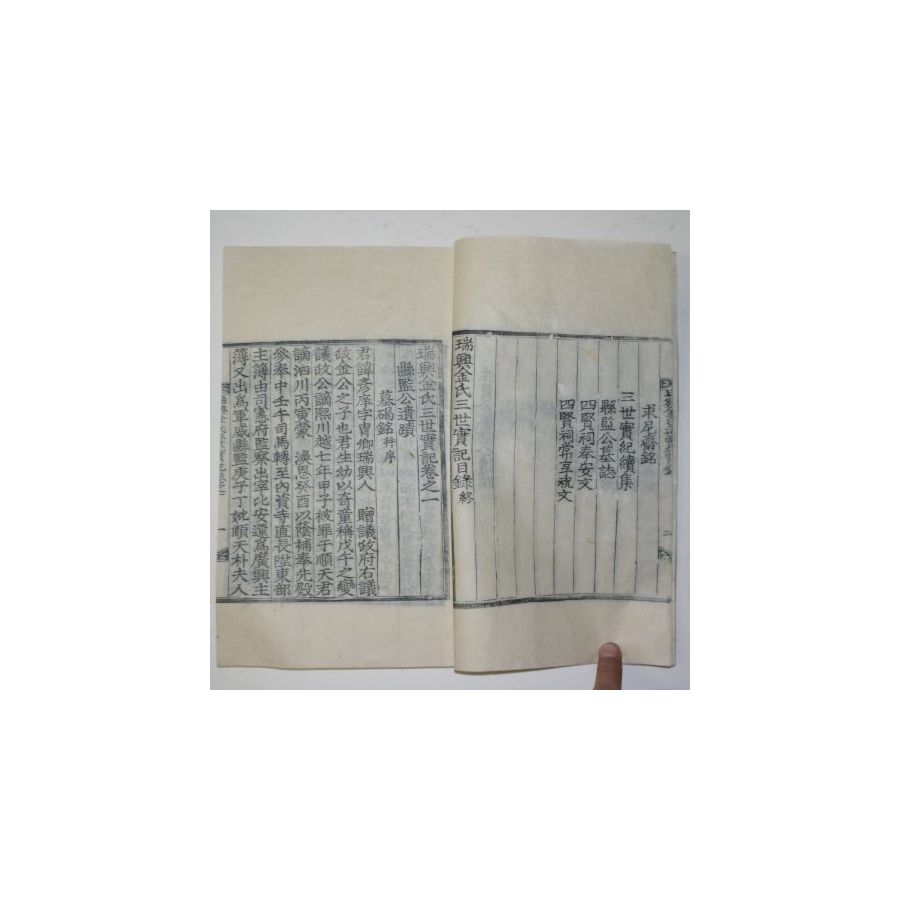 求尼齋銘
三世實紀續集
縣監公墓誌
四賢祠奉安文
四賢祠常享祝文
瑞興金氏三世實記目錄終
瑞興金氏三世實記卷之一
縣監公遺蹟
墓碣銘幷序
君諱彦庠字胄卿瑞興人 贈議政府右議
政金公之子也君生幼以奇童稱戊午之變
議政公謫熙川越七年甲子被罪于順天君
謫泗川丙寅蒙 渙恩癸酉以蔭補奉先殿
參奉中壬午司馬轉至內資寺直長陞東部
主簿由司憲府監察出宰比安還爲廣興主
簿又出爲軍威縣監庚子丁妣順天朴夫人